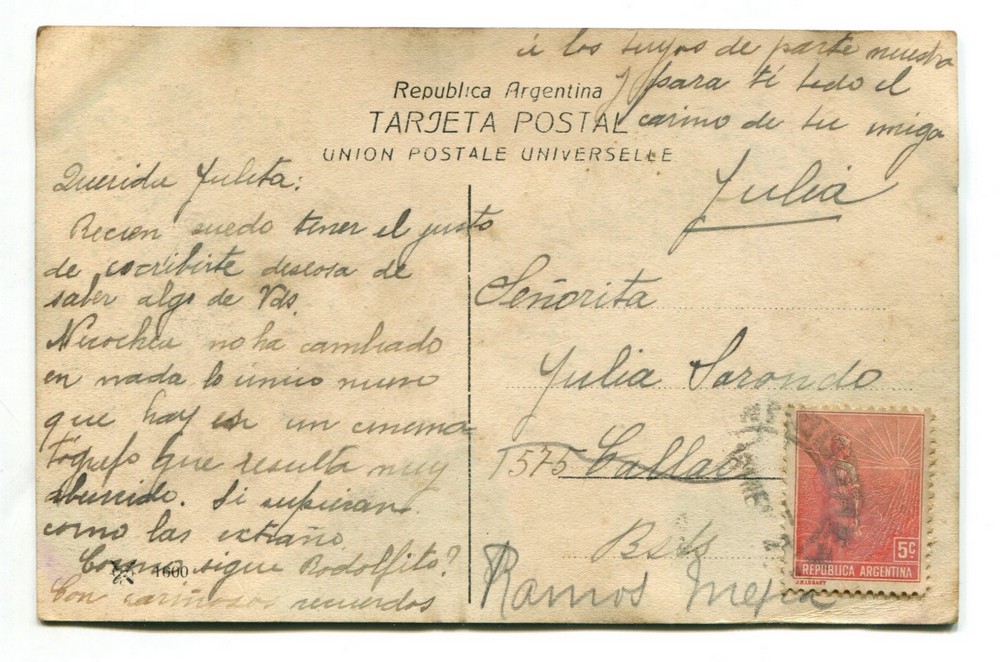 Republica Argentina
TARJETA POSTAL
UNION POSTALE UNIVERSELLE
Querida Julita:
Recien puedo tener el gusto
de escribirte deseosa de
saber algo de Vds.
Necochea no ha cambiado
en nada lo unico nuevo
que hay es un cinema
tógrafo que resulta muy
aburrido. Si supieran
como las extraño.
Como sigue Rodolfito?
Con cariñosos recuerdos
á los tuyos de parte nuestra
y para tí todo el
carino de tu amiga
Julia
Señorita
Julia Sorondo
1575 Callao
BsAs
Ramos Mejia
1600
5c
REPÚBLICA ARGENTINA